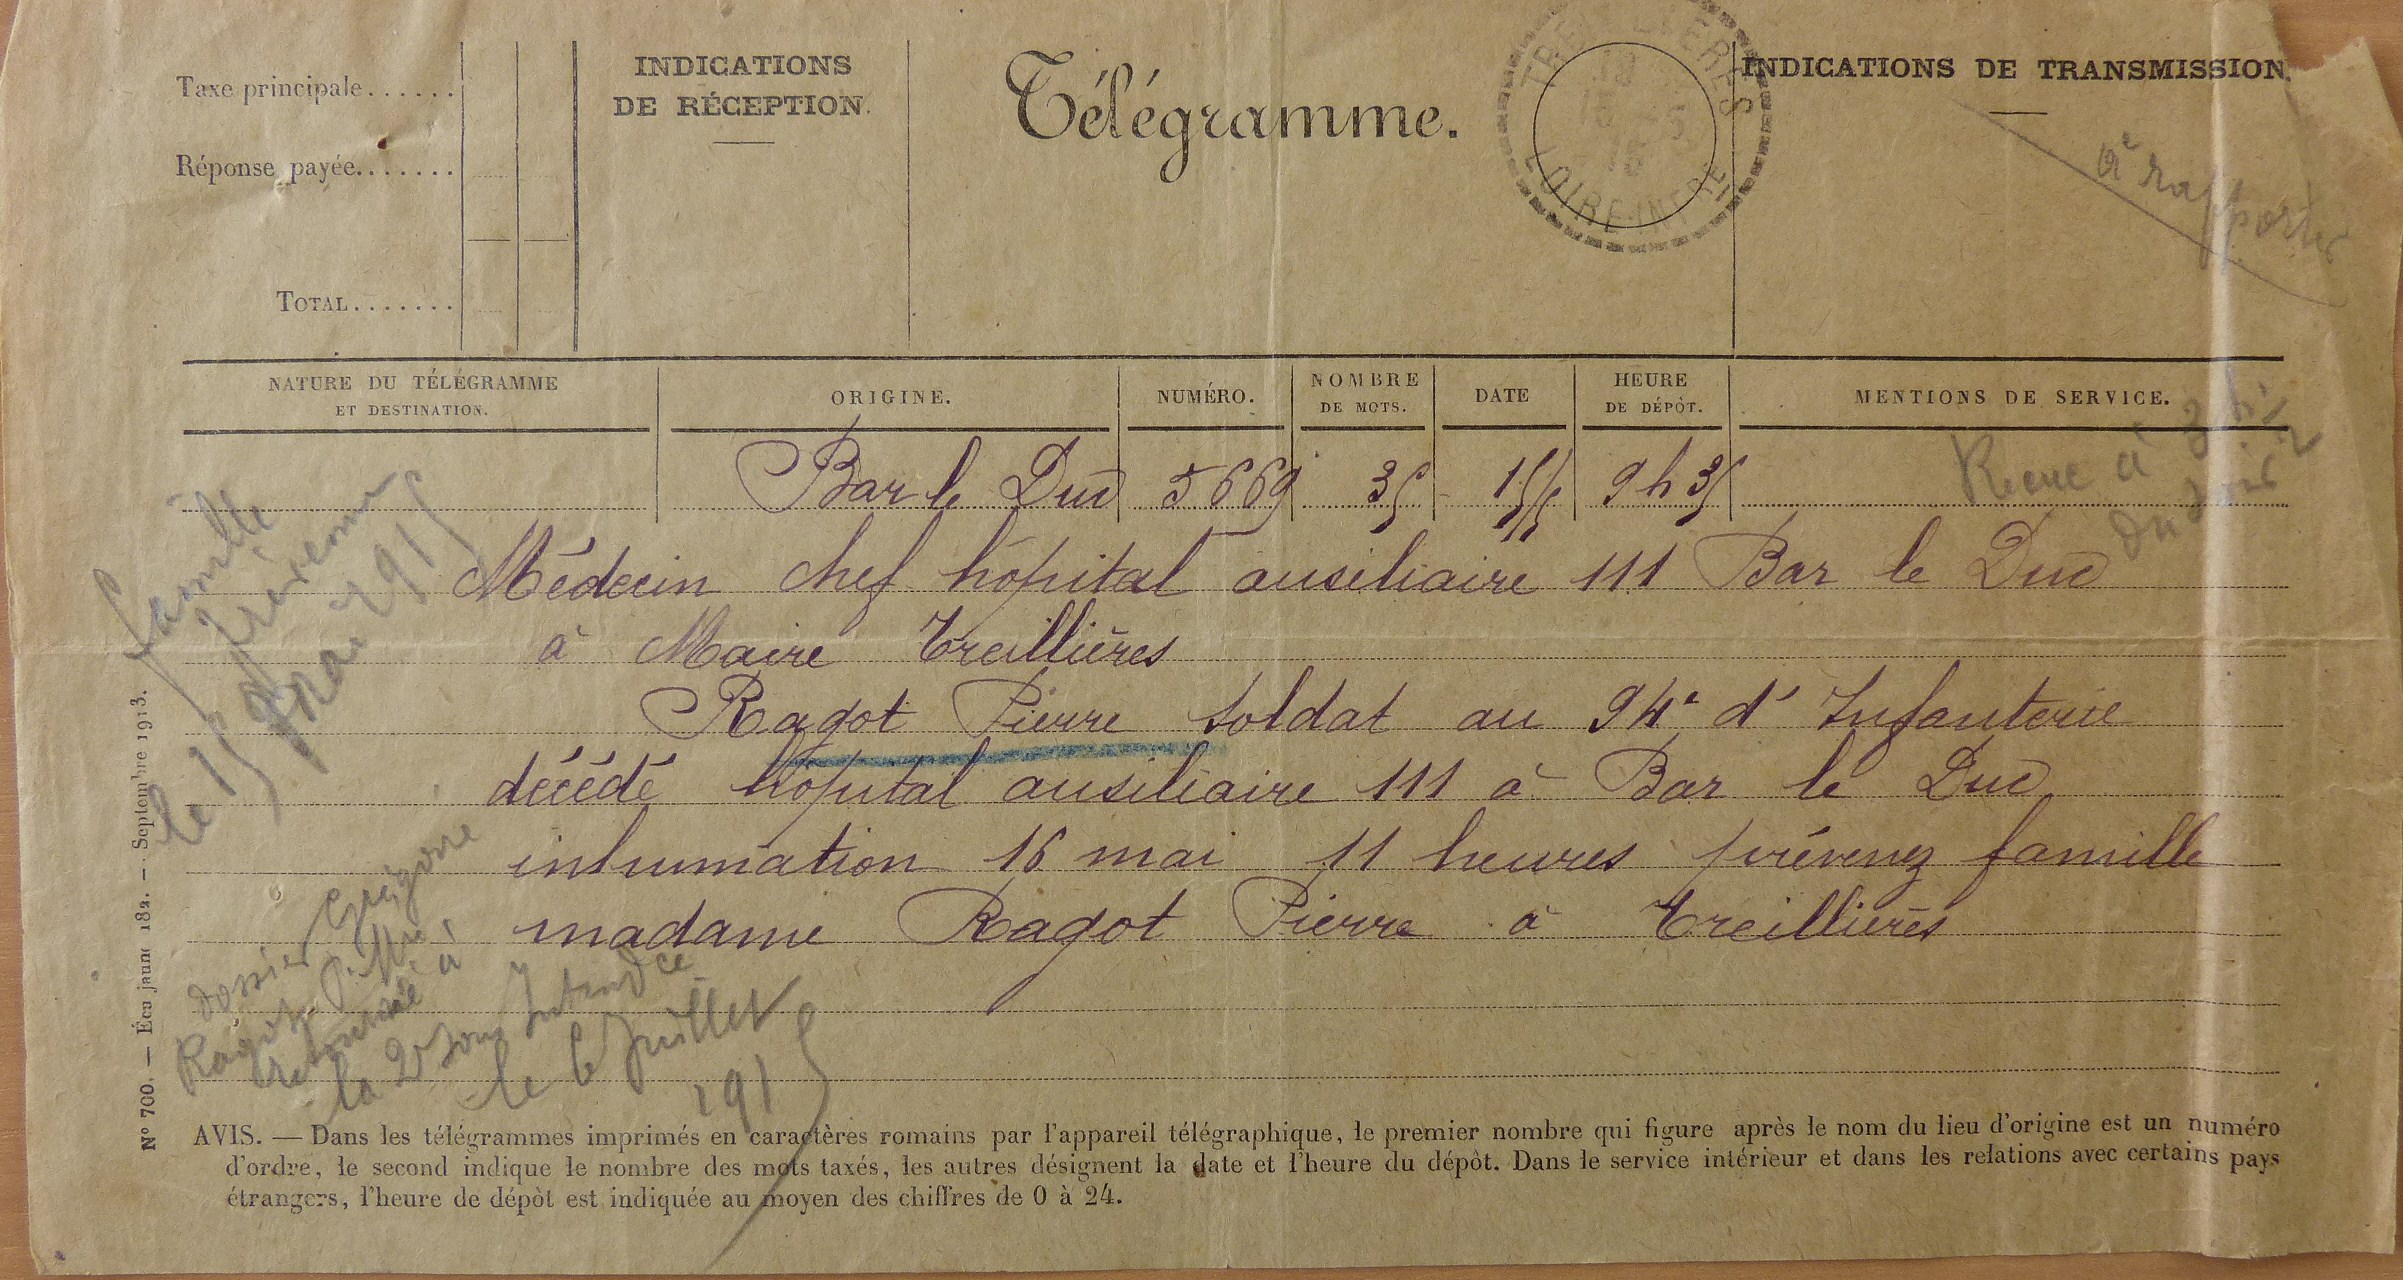 Taxe principale......
Réponse payée.......
TOTAL.......
INDICATIONS
DE RÉCEPTION.
Télégramme.
TREILLIÈRES
LOIRE-INFRE
INDICATIONS DE TRANSMISSION.
à rapporter
NATURE DU TÉLÉGRAMME
ET DESTINATION.
ORIGINE.
NUMÉRO.
NOMBRE
DE MOTS.
DATE
HEURE
DE DÉPÔT.
MENTIONS DE SERVICE.
Bar le Duc 5669 35 15/5 9h35
Recue à 3h 1/2
du soir
Médecin chef hôpital auxiliaire 111 Bar le Duc
à Maire Treillières
Ragot Pierre soldat au 94e d'Infanterie
décédé hôpital auxiliaire 111 à Bar le Duc
inhumation 16 mai 11 heures prévenez famille
madame Ragot Pierre à Treillières
famille
prévenue
le 15 mai 1915
dossier
Ragot P.
retourné à
la 2e sous Intendce
le 6 Juillet
1915
No 700. — Écu jaune 182. — Septembre 1913.
AVIS. — Dans les télégrammes imprimés en caractères romains par l'appareil télégraphique, le premier nombre qui figure après le nom du lieu d'origine est un numéro
d'ordre, le second indique le nombre des mots taxés, les autres désignent la date et l'heure du dépôt. Dans le service intérieur et dans les relations avec certains pays
étrangers, l'heure de dépôt est indiquée au moyen des chiffres de 0 à 24.